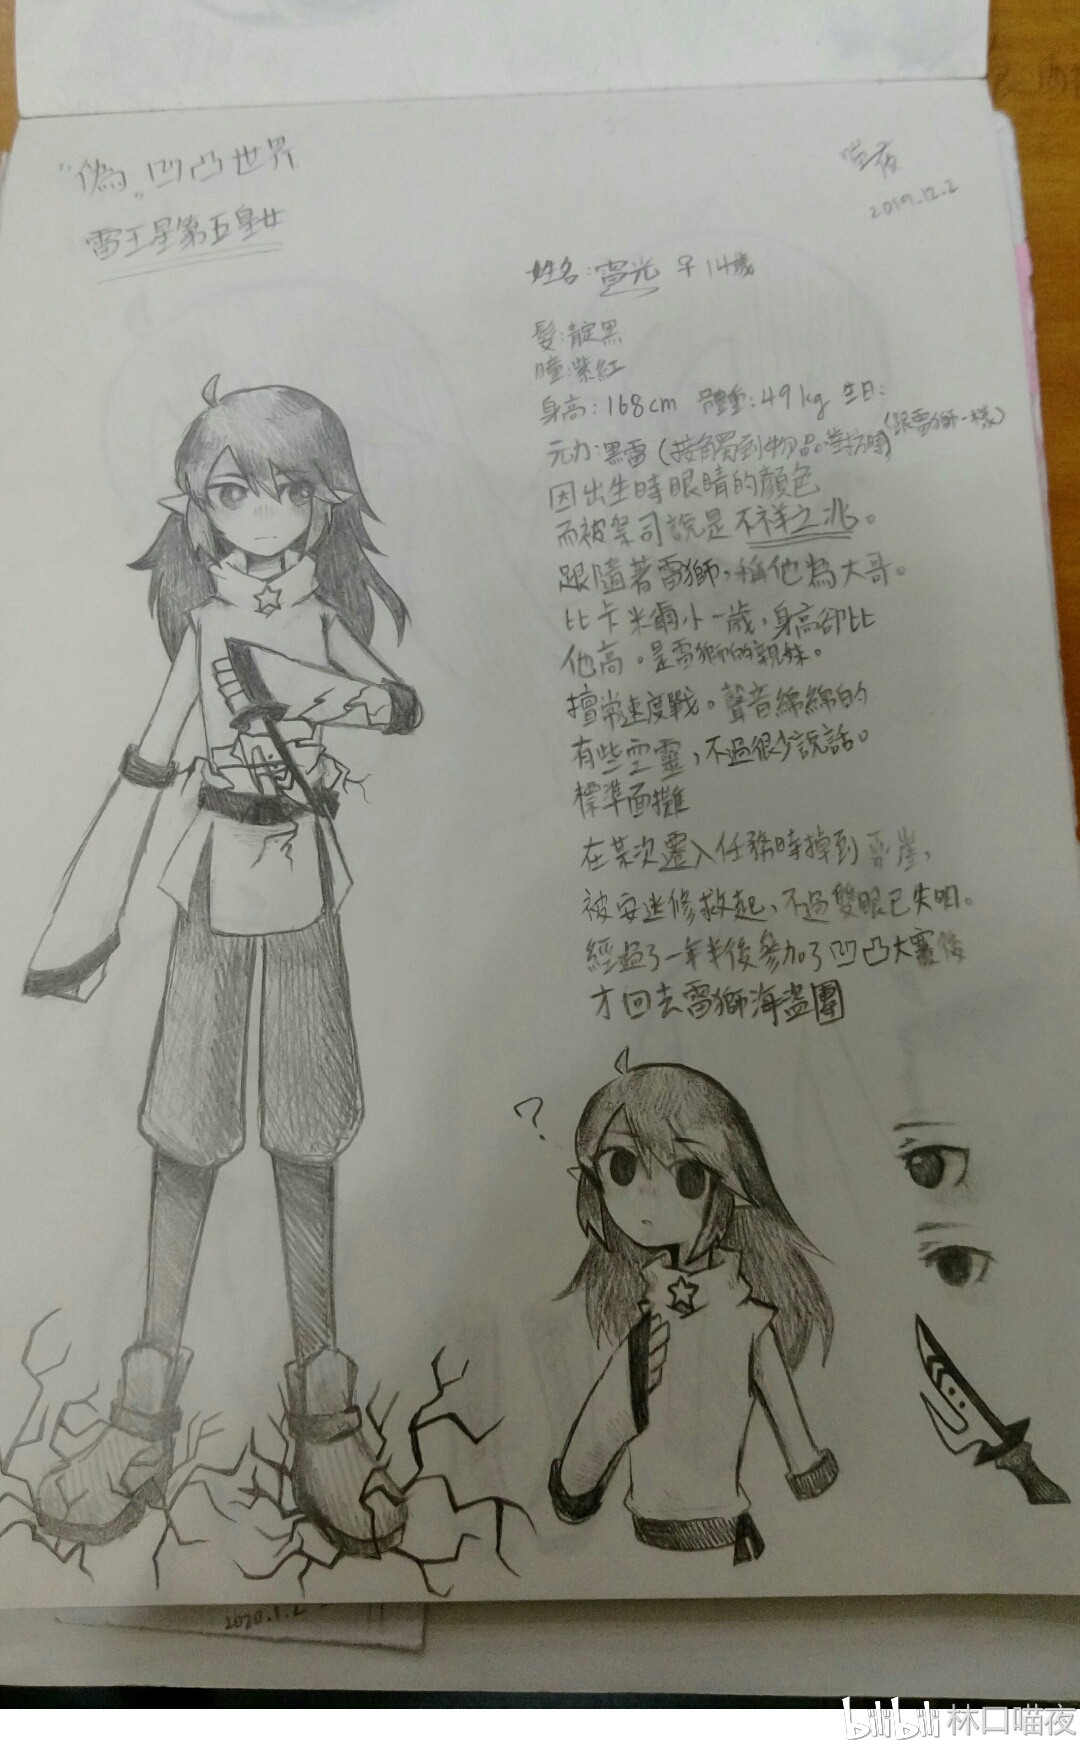 "偽"凹凸世界
雷王星第五皇女
喵夜
2019.12.2
姓名:雷光 ♀ 14歲
髮:靛黑
瞳:紫紅
身高:168cm 體重:49kg 生日:
(跟雷獅一樣)
元力:黑雷(接觸到物品、對抗時)
因出生時眼睛的顏色
而被祭司說是不祥之兆。
跟隨著雷獅,稱他為大哥。
比卡米爾小一歲,身高卻比
他高。是雷獅的親妹。
擅常速度戰。聲音綿綿的
有些空靈,不過很少說話。
標準面攤
在某次潛入任務時掉到懸崖,
被安迷修救起,不過雙眼已失明。
經過了一年半後參加了凹凸大賽後
才回去雷獅海盜團
?
2020.1.2
bilibili 林口喵夜